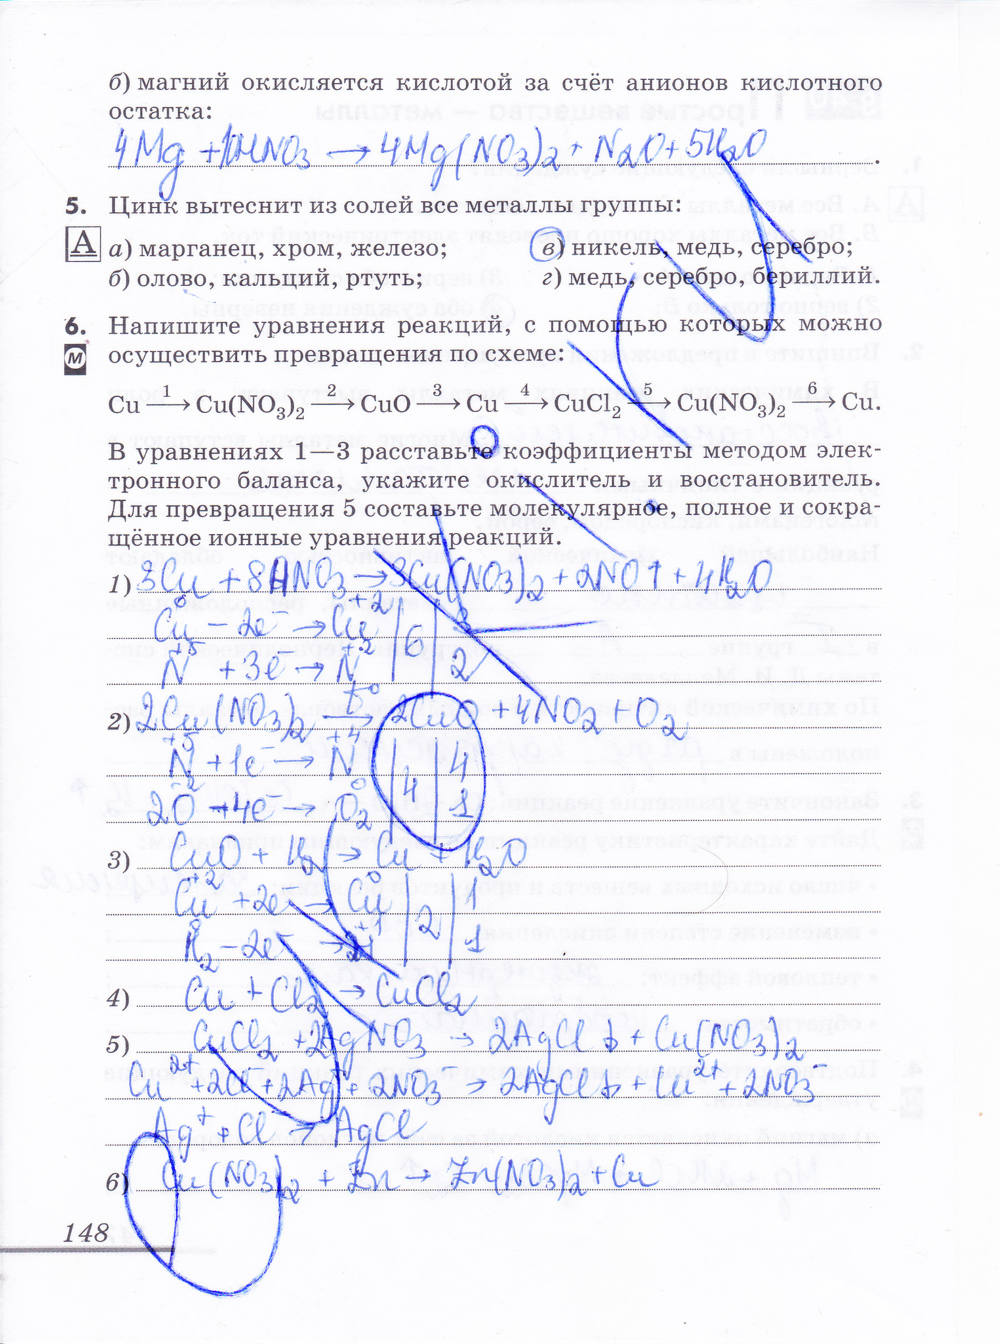 б) магний окисляется кислотой за счёт анионов кислотного
остатка:
4Mg + 10HNO₃ → 4Mg(NO₃)₂ + N₂O + 5H₂O
5. Цинк вытеснит из солей все металлы группы:
А а) марганец, хром, железо; в) никель, медь, серебро;
б) олово, кальций, ртуть; г) медь, серебро, бериллий.
6. Напишите уравнения реакций, с помощью которых можно
М осуществить превращения по схеме:
Cu —1→ Cu(NO₃)₂ —2→ CuO —3→ Cu —4→ CuCl₂ —5→ Cu(NO₃)₂ —6→ Cu.
В уравнениях 1—3 расставьте коэффициенты методом элек-
тронного баланса, укажите окислитель и восстановитель.
Для превращения 5 составьте молекулярное, полное и сокра-
щённое ионные уравнения реакций.
1) 3Cu + 8HNO₃ → 3Cu(NO₃)₂ + 2NO↑ + 4H₂O
Cu⁰ − 2e⁻ → Cu⁺² | 6 | 3
N⁺⁵ + 3e⁻ → N⁺² | | 2
2) 2Cu(NO₃)₂ —t°→ 2CuO + 4NO₂ + O₂
N⁺⁵ + 1e⁻ → N⁺⁴ | 4 | 4
2O⁻² − 4e⁻ → O₂⁰ | | 1
3) CuO + H₂ → Cu + H₂O
Cu⁺² + 2e⁻ → Cu⁰ | 2 | 1
H₂⁰ − 2e⁻ → 2H⁺ | | 1
4) Cu + Cl₂ → CuCl₂
5) CuCl₂ + 2AgNO₃ → 2AgCl↓ + Cu(NO₃)₂
Cu²⁺ + 2Cl⁻ + 2Ag⁺ + 2NO₃⁻ → 2AgCl↓ + Cu²⁺ + 2NO₃⁻
Ag⁺ + Cl⁻ → AgCl
6) Cu(NO₃)₂ + Zn → Zn(NO₃)₂ + Cu
148